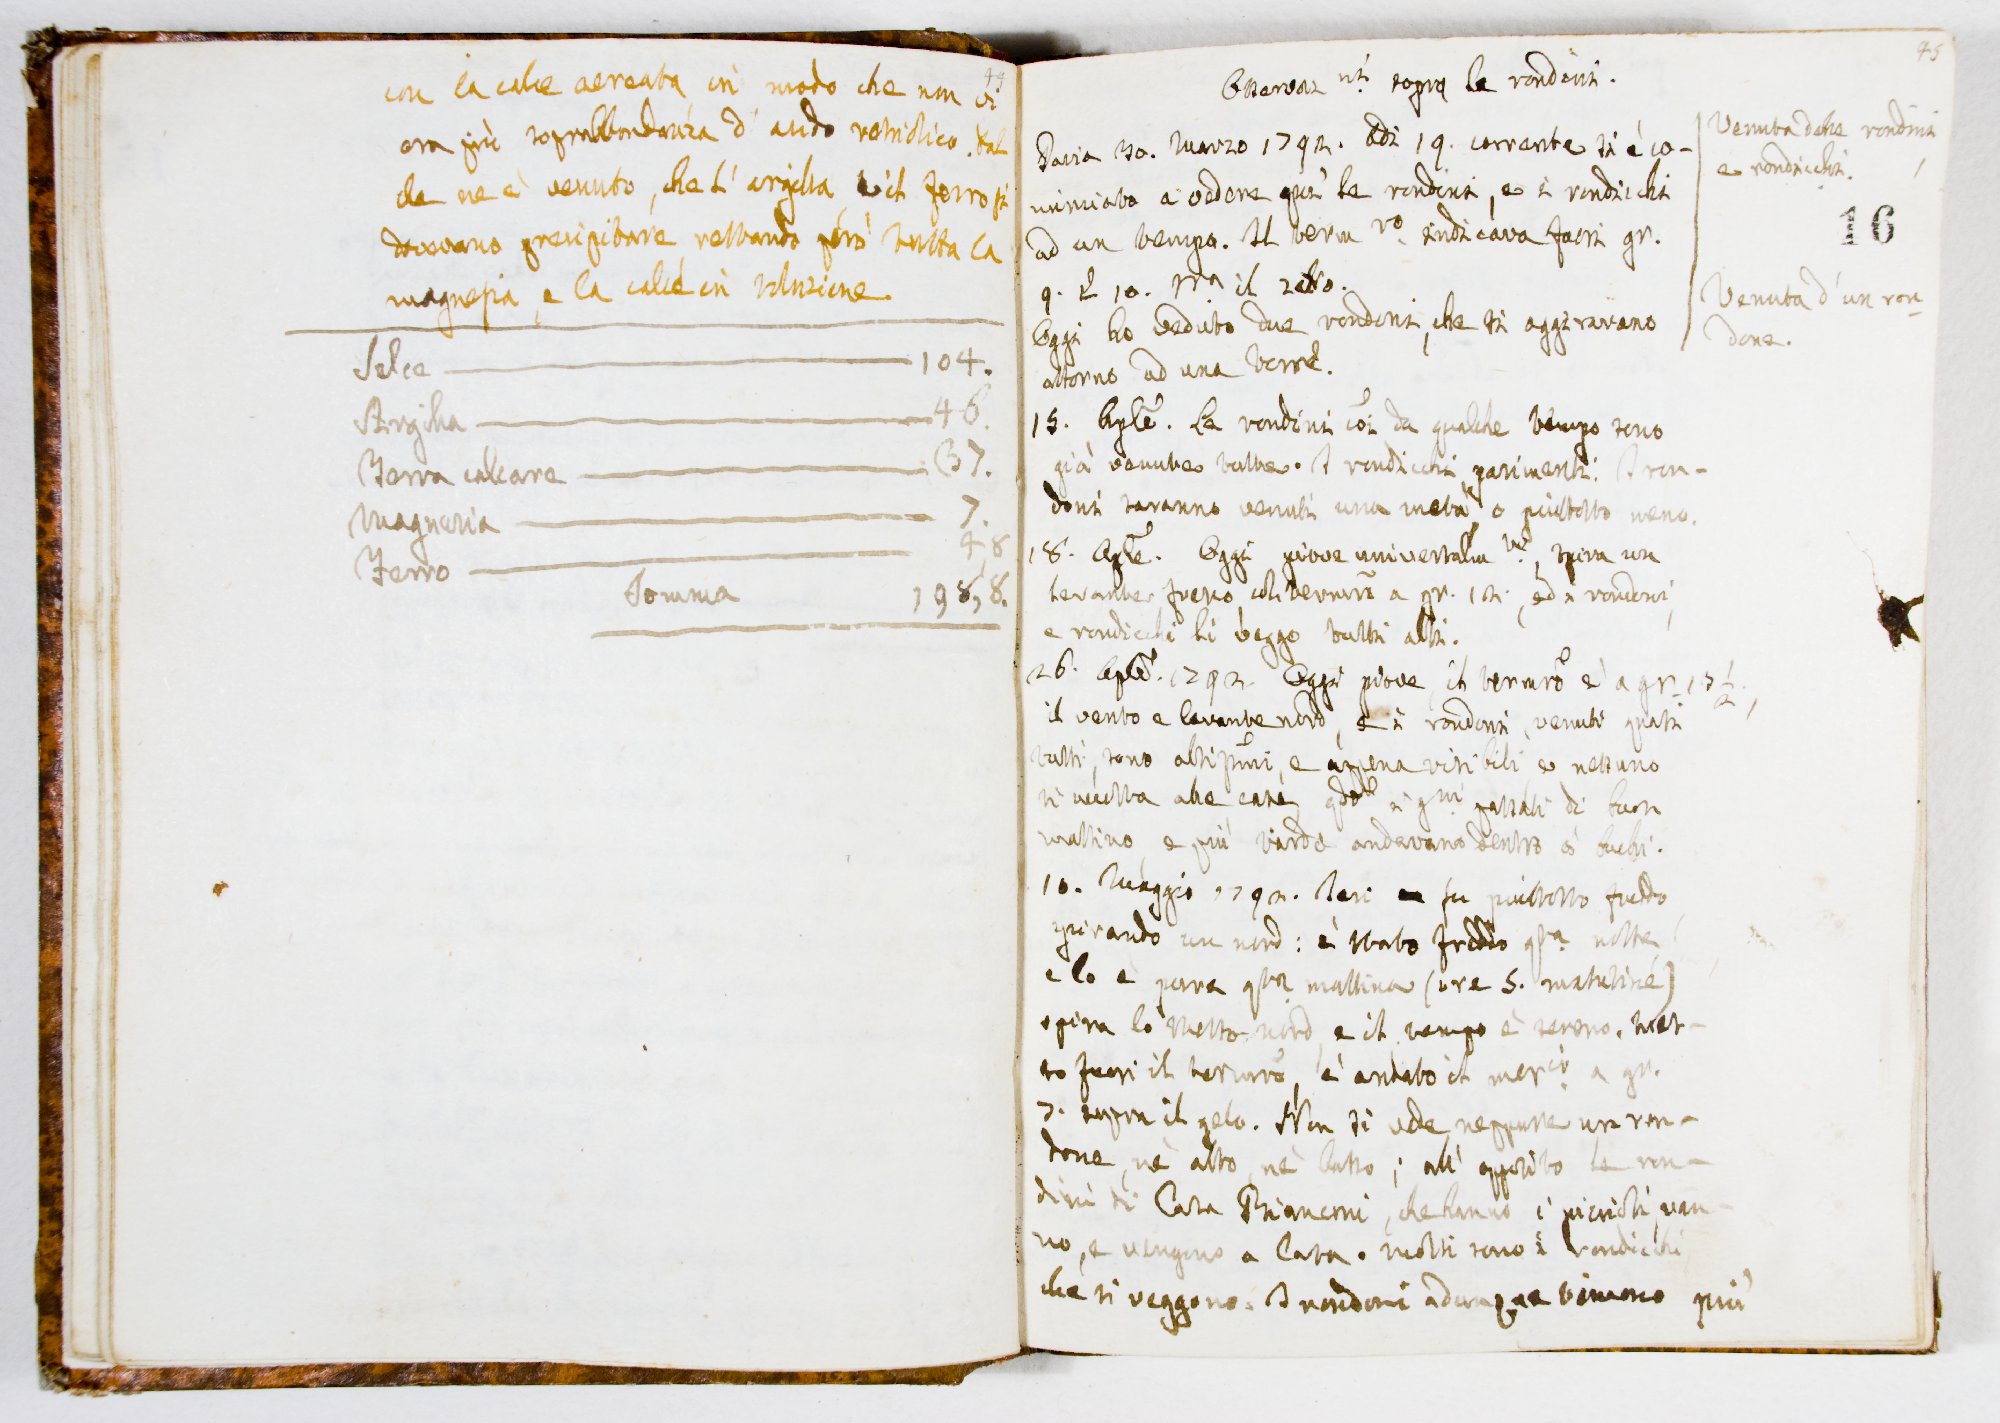 44
con la calce aereata in modo che non vi
era più soprabbondanza d' acido vetriolico. Dal
che ne è venuto, che l' argilla, e il ferro si
dovevano precipitare restando però tutta la
magnesia, e la calce in soluzione.
Selce 104.
Argilla 46.
Terra calcare 37.
Magnesia 7.
Ferro 4,8
Somma 198,8.
45
Osservaz.ni sopra le rondini.
Pavia 30. Marzo 1792. Adi 19. corrente si è co-
minciato a vedere qui le rondini, e i rondicchi
ad un tempo. Il term.ro indicava fuori gr.
9. e 10. sopra il zero.
Oggi ho veduto due rondoni, che si aggiravano
attorno ad una torre.
Venuta delle rondini
e rondicchi.
16
Venuta d' un ron-
done.
15. Aple. Le rondini da qualche tempo sono
già venute tutte. I rondicchi parimenti. I ron-
doni saranno venuti una metà, o piuttosto meno.
18. Aple. Oggi piove universalm.te, spira un
levante fresco, col termro a gr. 12. ed i rondoni,
e rondicchi li veggo tutti alti.
26. Aple. 1792. Oggi piove, il termro è a gr. 13 1/2,
il vento e levante nord, e i rondoni, venuti quasi
tutti, sono altissimi, e appena visibili, e nessuno
si accosta alle case, i gni passati di buon
mattino, e più tardi andavano dentro a' buchi.
10. Maggio 1792. Ieri fu piuttosto freddo
spirando un nord: è stato freddo qsta notte
e lo è pure qsta mattina (ore 5. matutine)
spira lo stesso nord, e il tempo è sereno. Mes-
so fuori il termro, è andato il mercio a gr.
7. sopra il gelo. Non si vede neppure un ron-
done, nè alto, nè basso; all' opposto le ron-
dini di Casa Bianconi, che hanno i piccioli, van-
no, e vengono a Casa. Molti sono i rondicchi
che si veggono. I rondoni adunque temono più